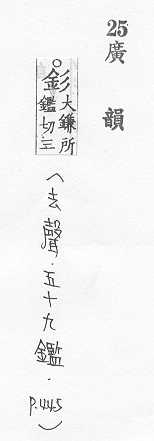 25
廣韻
○釤大鎌所
鑑切三
(去聲·五十九鑑·P.445)